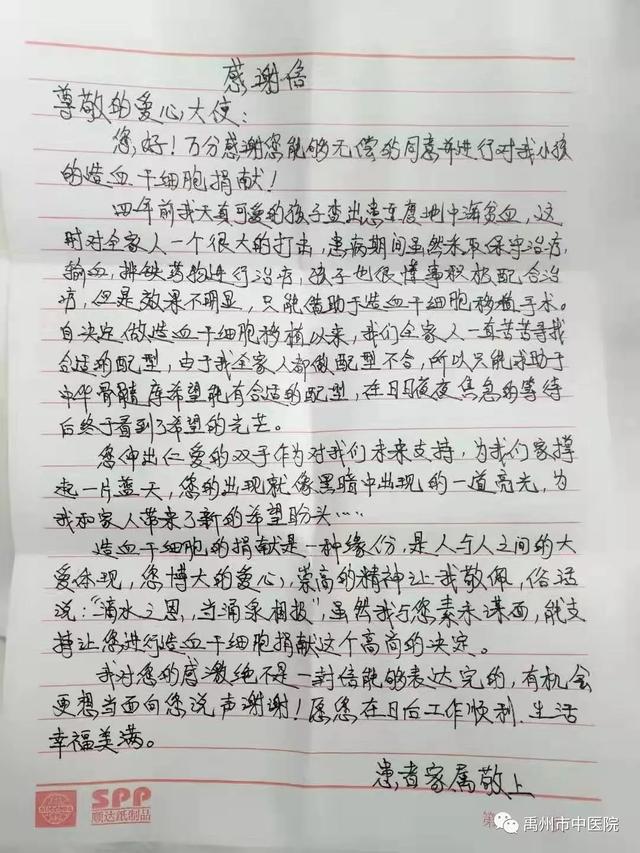 感谢信
尊敬的爱心大使：
您，好！万分感谢您能够无偿的同意并进行对我小孩
的造血干细胞捐献！
四年前我天真可爱的孩子查出患重度地中海贫血，这
时对全家人一个很大的打击，患病期间虽然采取保守治疗，
输血，排铁药物进行治疗，孩子也很懂事积极配合治
疗，但是效果不明显，只能借助于造血干细胞移植手术。
自决定做造血干细胞移植以来，我们全家人一直苦苦寻找
合适的配型，由于我全家人都做配型不合，所以只能求助于
中华骨髓库希望能有合适的配型，在日日夜夜焦急的等待
后终于看到了希望的光芒。
您伸出仁爱的双手作为对我们未来支持，为我们家撑
起一片蓝天，您的出现就像黑暗中出现的一道亮光，为
我和家人带来了新的希望盼头……
造血干细胞的捐献是一种缘份，是人与人之间的大
爱体现，您博大的爱心，崇高的精神让我敬佩，俗话
说：“滴水之恩，当涌泉相报”，虽然我与您素未谋面，能支
持让您进行造血干细胞捐献这个高尚的决定。
我对您的感激绝不是一封信能够表达完的，有机会
更想当面向您说声谢谢！愿您在日后工作顺利．生活
幸福美满。
患者家属敬上
SPP
顺达纸制品
第
禹州市中医院